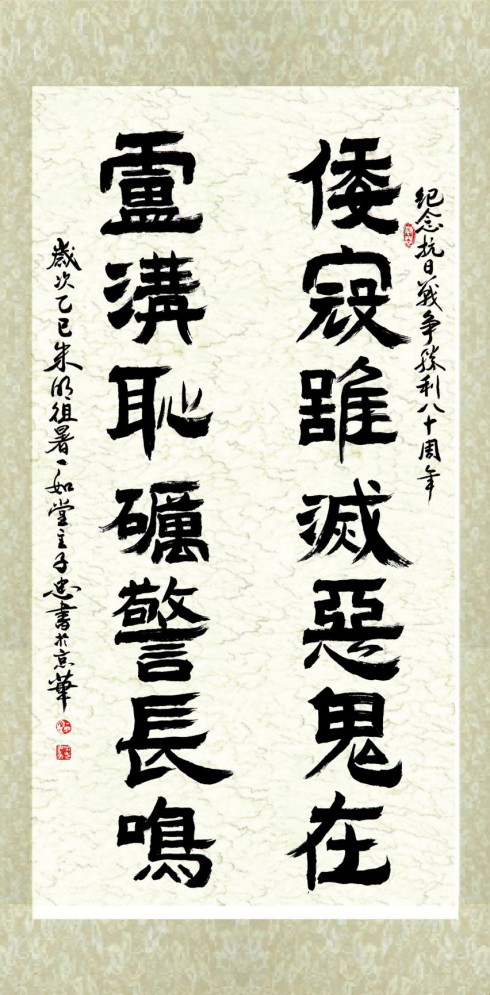 纪念抗日戰争勝利八十周年
倭寇雖滅惡鬼在
盧溝恥礪警長鳴
歲次乙巳朱明徂暑一如堂主子忠書於京華